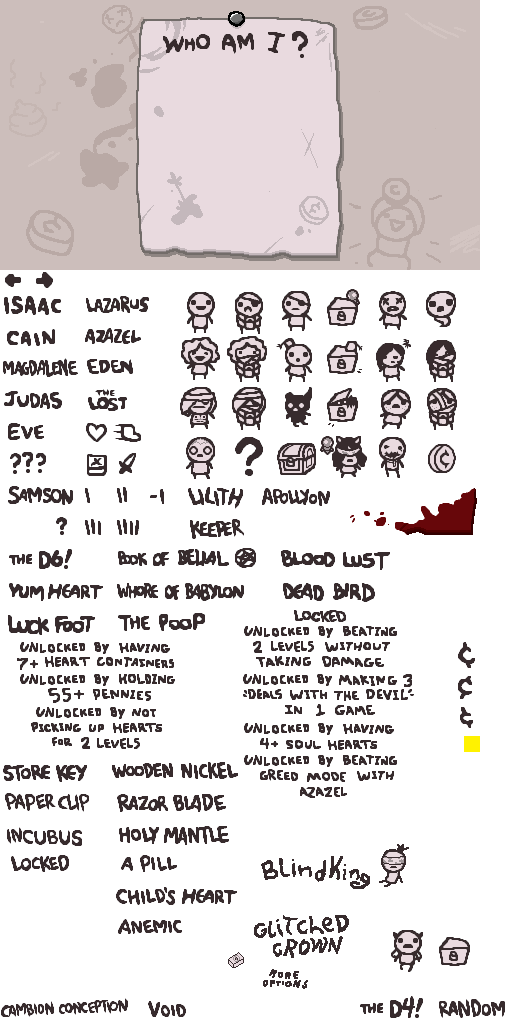 WHO AM I ?
ISAAC LAZARUS
CAIN AZAZEL
MAGDALENE EDEN
JUDAS THE LOST
EVE
??? ?
SAMSON I II -I LILITH APOLLYON
? III IIII KEEPER
THE D6! BOOK OF BELIAL BLOOD LUST
YUM HEART WHORE OF BABYLON DEAD BIRD
LUCK FOOT THE POOP
LOCKED
UNLOCKED BY BEATING
2 LEVELS WITHOUT
TAKING DAMAGE
UNLOCKED BY HAVING
7+ HEART CONTAINERS
UNLOCKED BY HOLDING
55+ PENNIES
UNLOCKED BY NOT
PICKING UP HEARTS
FOR 2 LEVELS
UNLOCKED BY MAKING 3
"DEALS WITH THE DEVIL"
IN 1 GAME
UNLOCKED BY HAVING
4+ SOUL HEARTS
UNLOCKED BY BEATING
GREED MODE WITH
AZAZEL
¢
¢
¢
STORE KEY WOODEN NICKEL
PAPER CLIP RAZOR BLADE
INCUBUS HOLY MANTLE
LOCKED A PILL
CHILD'S HEART
ANEMIC
BlindKing
GLITCHED
CROWN
MORE
OPTIONS
CAMBION CONCEPTION VOID THE D4! RANDOM